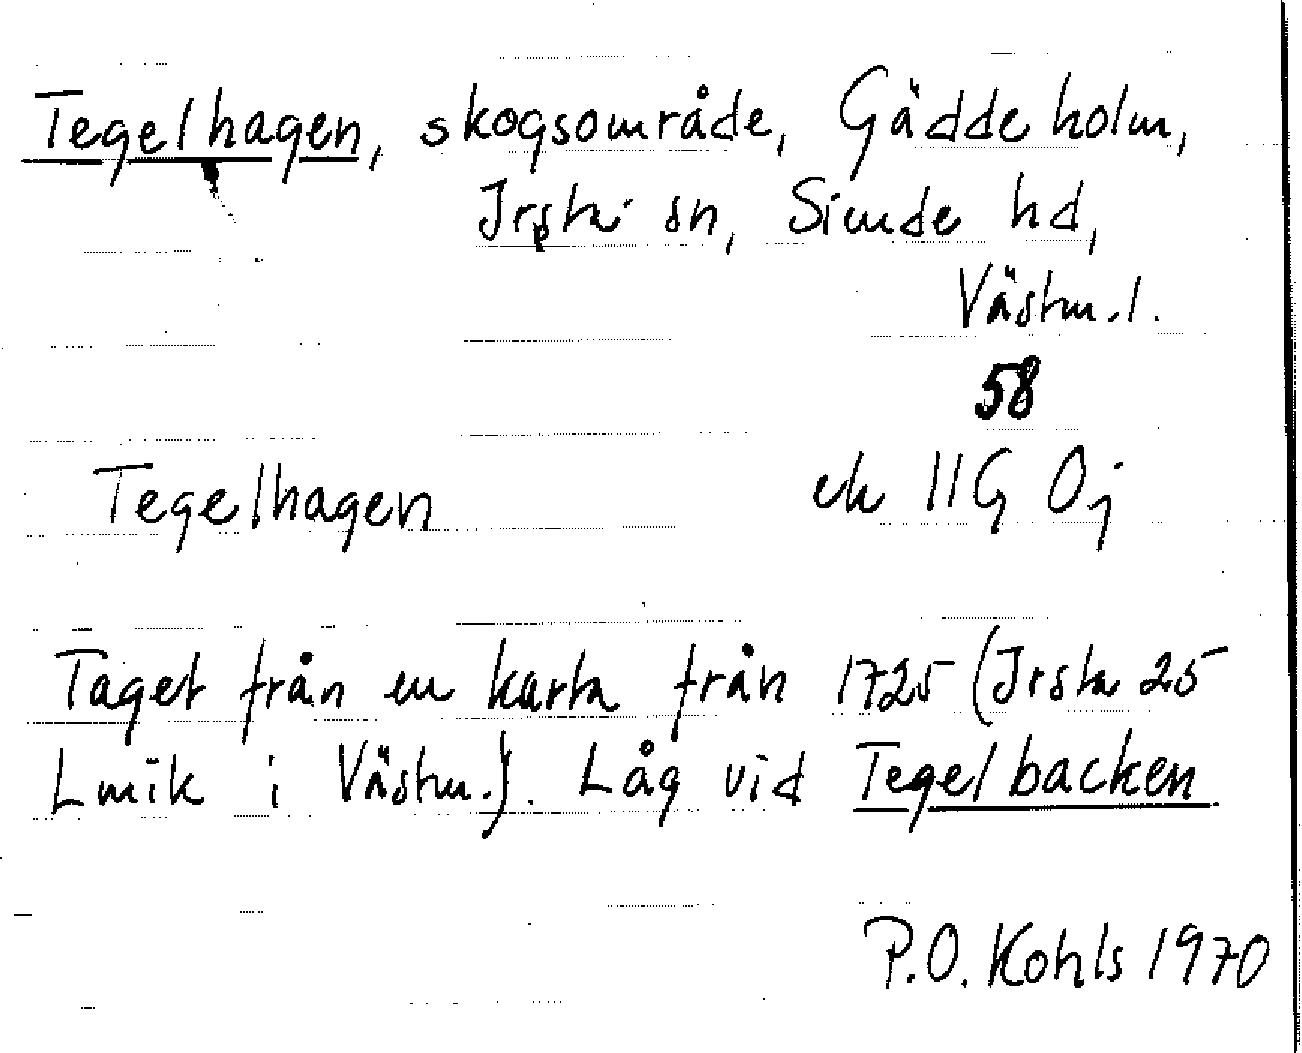 Tegelhagen, skogsområde, Gäddeholm,
Irsta sn, Siende hd,
Västm.l.
58
Tegelhagen ek 11G 0j
Taget från en karta från 1725 (Irsta 25
Lmik i Västm.). Låg vid Tegelbacken
P.O. Kohls 1970